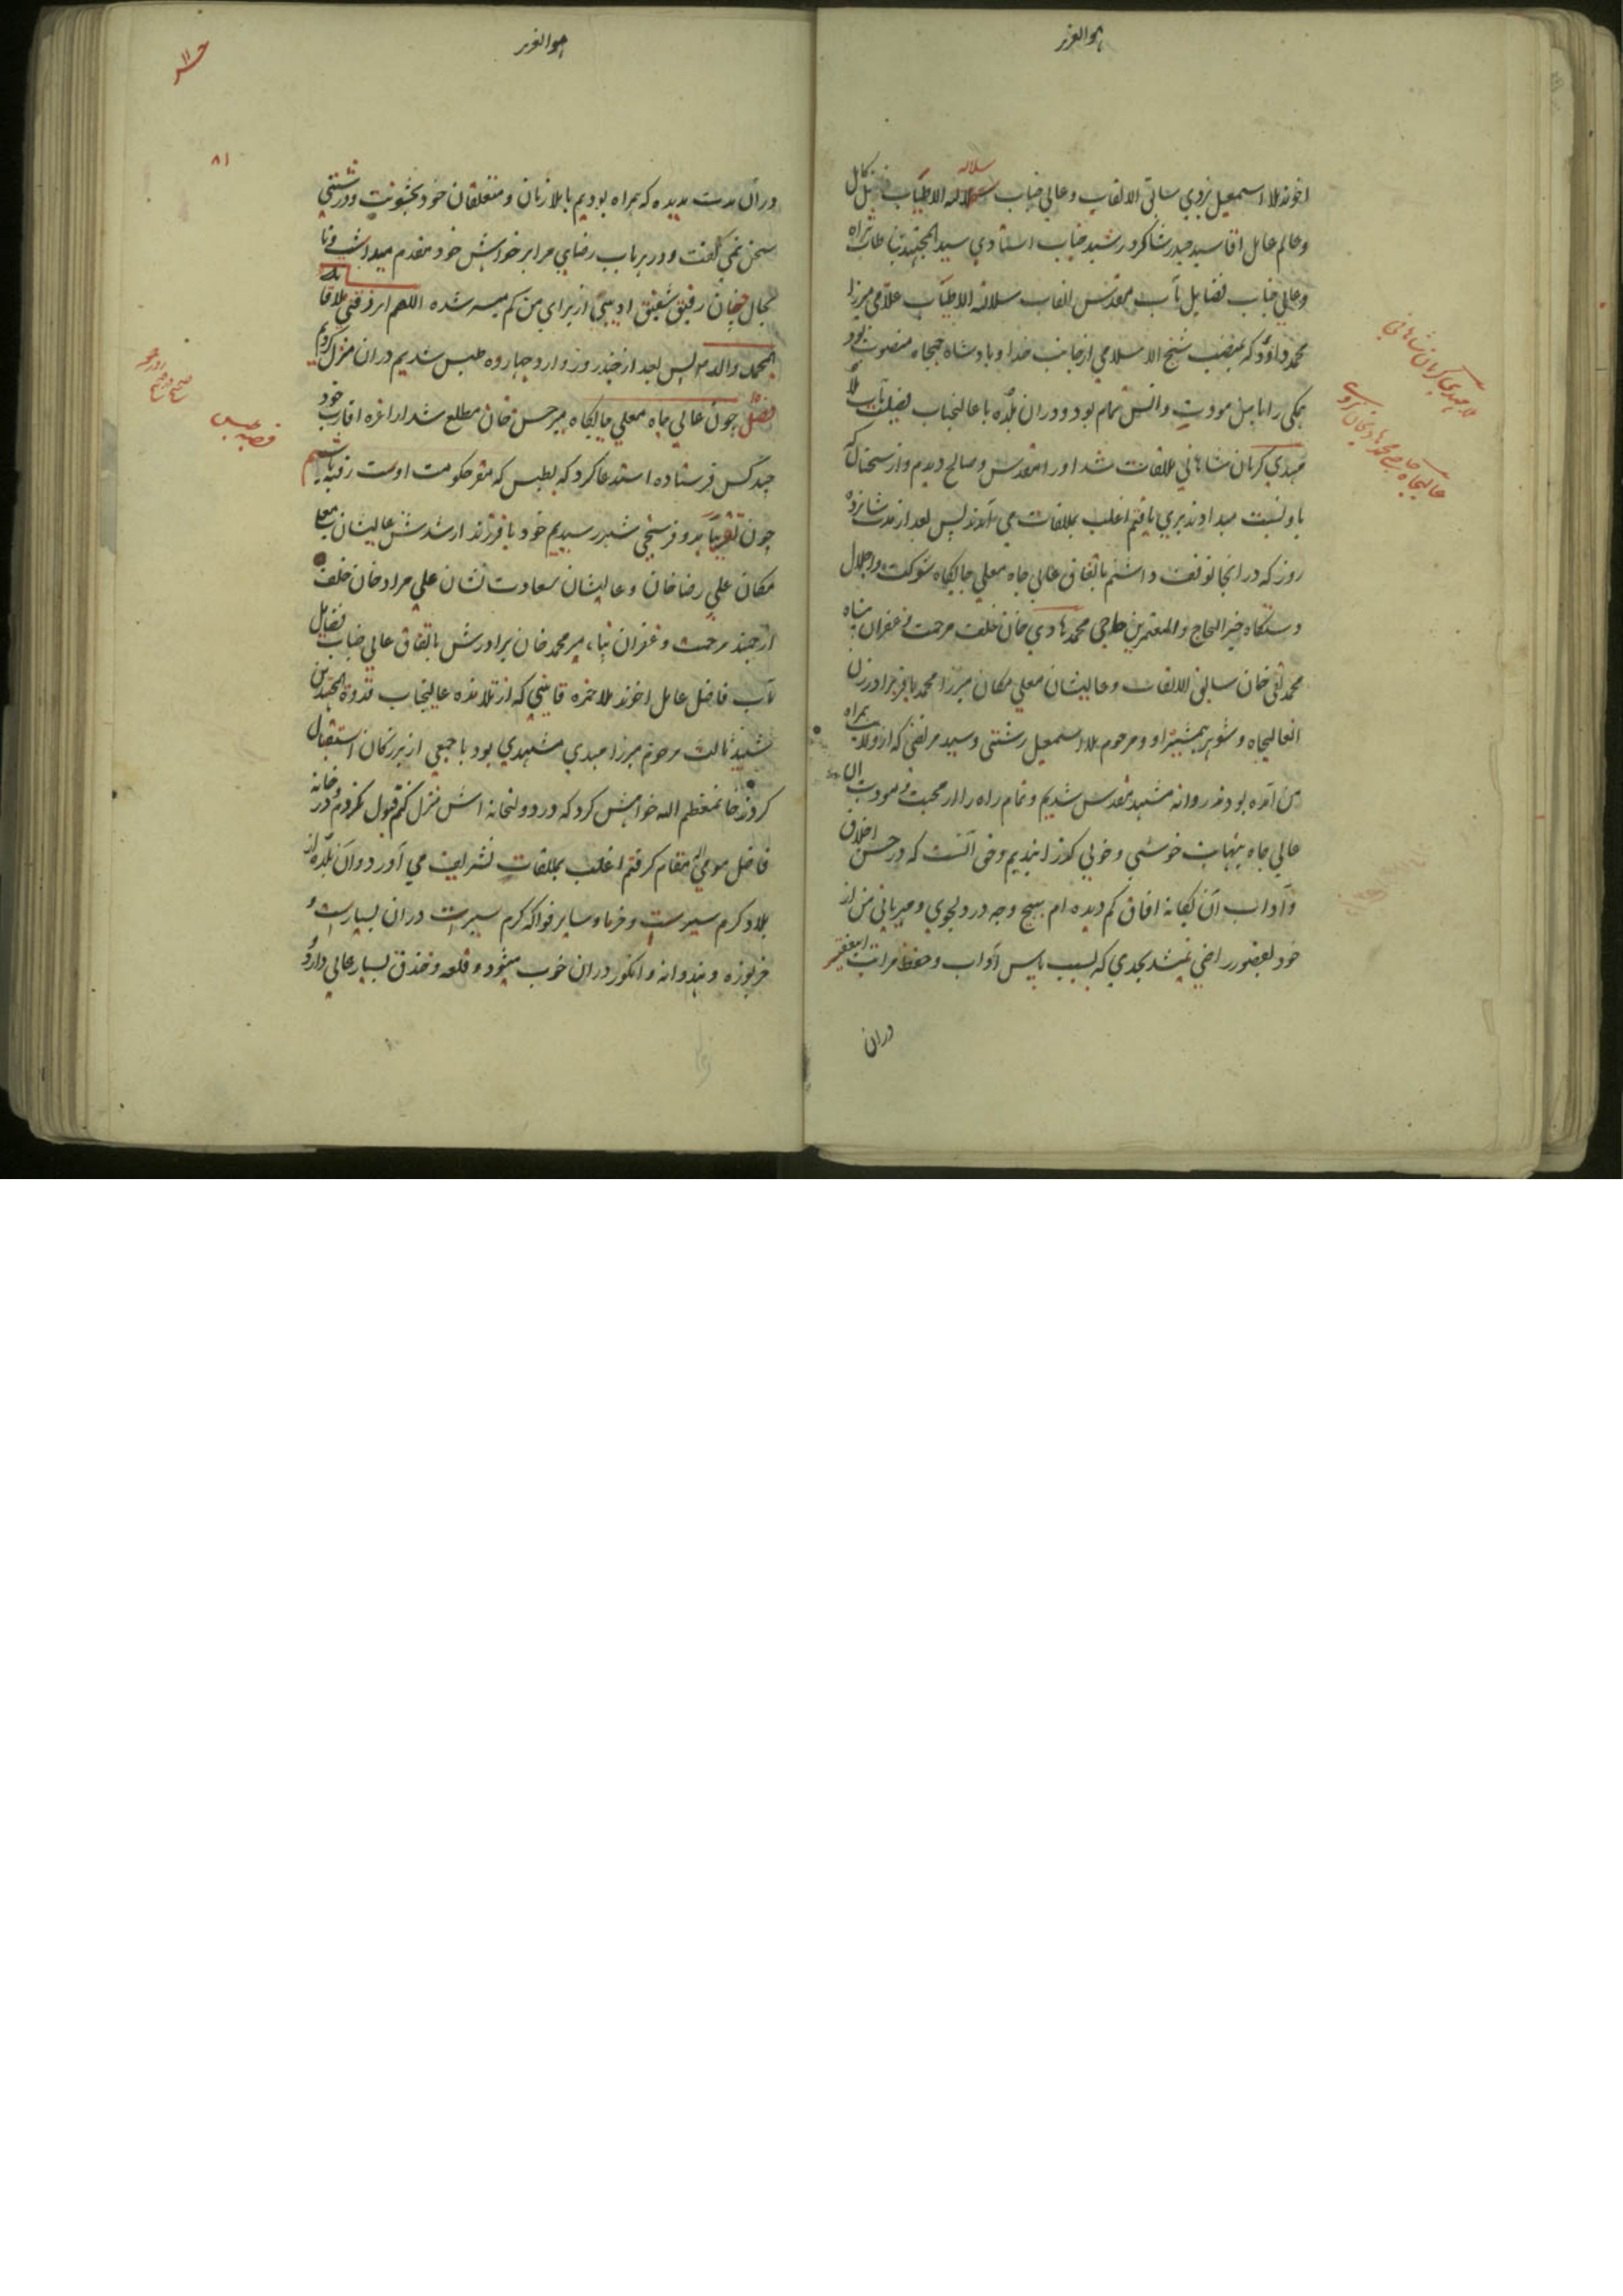 هوالعزیز
اخوند ملا اسمعیل یزدی سالق الالقاب وعالی جناب سلالة الاطیاب
وعالم عامل اقا سید حیدر شاکرد رشید جناب استادی سید المجتهدین طاب ثراه
وعالی جناب فضایل مآب مقدس القاب سلالة الاطیاب علامی میرزا
محمد داؤد که بمنصب شیخ الاسلامی از جانب خدا و بادشاه جمجاه منصوب بود
همکی را با من مودت وانس تمام بود ودران بلده با عالیجناب فضیلت مآب ملا
مهدی کرمان شاهانی ملاقات شد اورا مقدس وصالح دیدم واز سخنان که
باو نسبت میدادند بری یافتم اغلب بملاقات می آمدند پس بعد از مدت شانزده
روز که در انجا توقف داشتم باتفاق عالی جاه معلی جایکاه شوکت واجلال
دستکاه خیر الحاج والمعتمرین حاجی محمد هادی خان خلف مرحمت وغفران پناه
محمد تقی خان سابق الالقاب وعالیشان معلی مکان میرزا محمد باقر برادر زن
انعالیجاه وشوهر همشیره او ومرحوم ملا اسمعیل رشتی وسید مرتضی که از ولایت همراه
من آمده بودند روانه مشهد مقدس شدیم وتمام راه را از محبت ومودت ان
عالی جاه بنهایت خوشی وخوبی کذرانیدیم وحق آنست که در حسن اخلاق
وآداب آن یکانه افاق کم دیده ام بهیچ وجه در دلجوی ومهربانی من از
خود بقصور راضی نمیشد بحدی که بسبب پاس آداب وحفظ مراتب اینفقیر
دران
سلاله
ملا مهدی کرمان شاهانی
عالیجاه حاجی محمد هادیخان
هوالعزیز
۸۱
دران مدت مدیده که همراه بودیم با ملازمان ومتعلقان خود بخشونت ودرشتی
سخن نمی کفت ودر هر باب رضای مرا بر خواهش خود مقدم میداشت وتا
بحال چنان رفیق شفیق ادیبی از برای من کم میسر شده اللهم ارزقنی ملاقاته
بمحمد واله پس بعد از چند روز وارد چهارده طبس شدیم دران منزل کردیم
فصل چون عالی جاه معلی جایکاه میر حسن خان مطلع شد از اعزه اقارب خود
چند کس فرستاده استدعا کرد که بطبس که مقر حکومت اوست رفته باشیم
چون تقریبا بدو فرسخی شهر رسیدیم خود با فرزند ارشدش عالیشان معلی
مکان علی رضا خان وعالیشان سعادت نشان علی مراد خان خلف
ارجمند مرحمت وغفران پناه میر محمد خان برادرش باتفاق عالی جناب فضایل
مآب فاضل عامل اخوند ملا حمزه قاینی که از تلامذه عالیجناب قدوة المجتهدین
شهید ثالث مرحوم میرزا مهدی مشهدی بود با جمعی از بزرکان استقبال
کردند خان معظم الیه خواهش کرد که در دولتخانه اش منزل کنم قبول نکردم ودر خانه
فاضل مومی الیه مقام کرفتم اغلب بملاقات تشریف می آورد وآن بلده از
بلاد کرم سیرست وخرما وسایر فواکه کرم سیرت دران بسیارست و
خربوزه وهندوانه وانکور دران خوب میشود وقلعه وخندق بسیار عالی دارد
قصبه طبس